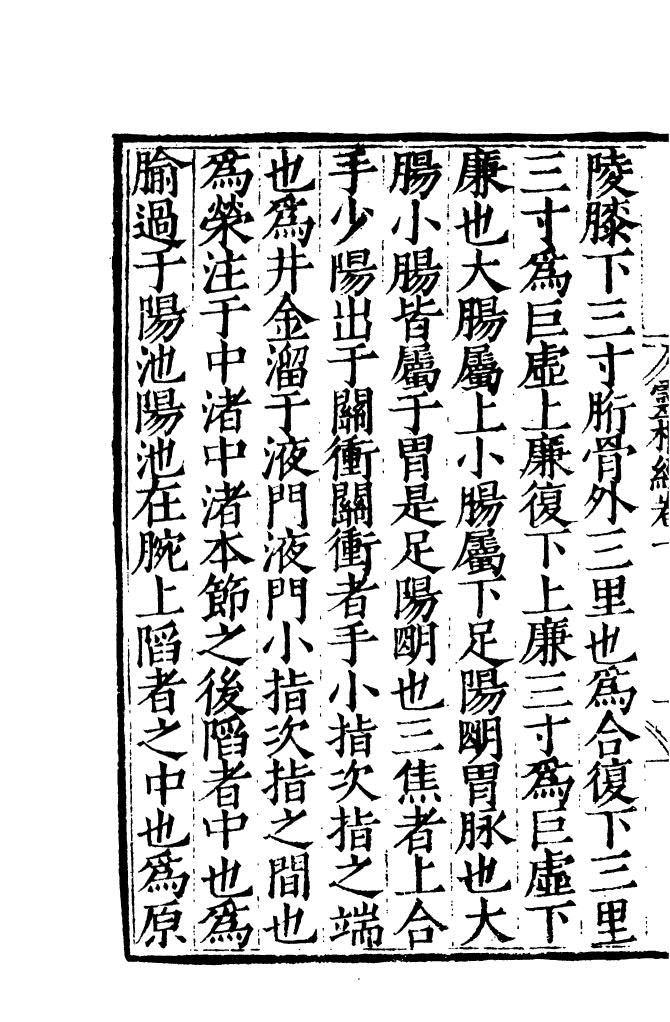 陵膝下三寸胻骨外三里也爲合復下三里
三寸爲巨虛上廉復下上廉三寸爲巨虛下
廉也大腸屬上小腸屬下足陽明胃脉也大
腸小腸皆屬于胃是足陽明也三焦者上合
手少陽出于關衝關衝者手小指次指之端
也爲井金溜于液門液門小指次指之間也
爲滎注于中渚中渚本節之後陷者中也爲
腧過于陽池陽池在腕上陷者之中也爲原
靈樞經卷一